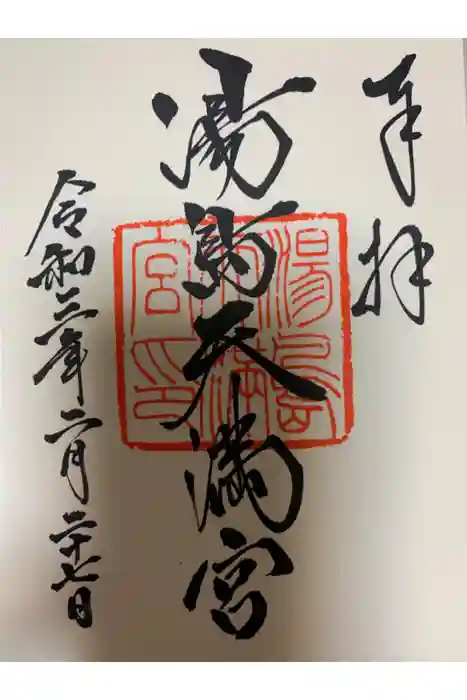 奉拝
湯島天満宮
令和三年二月二十七日
湯島
天満
宮印